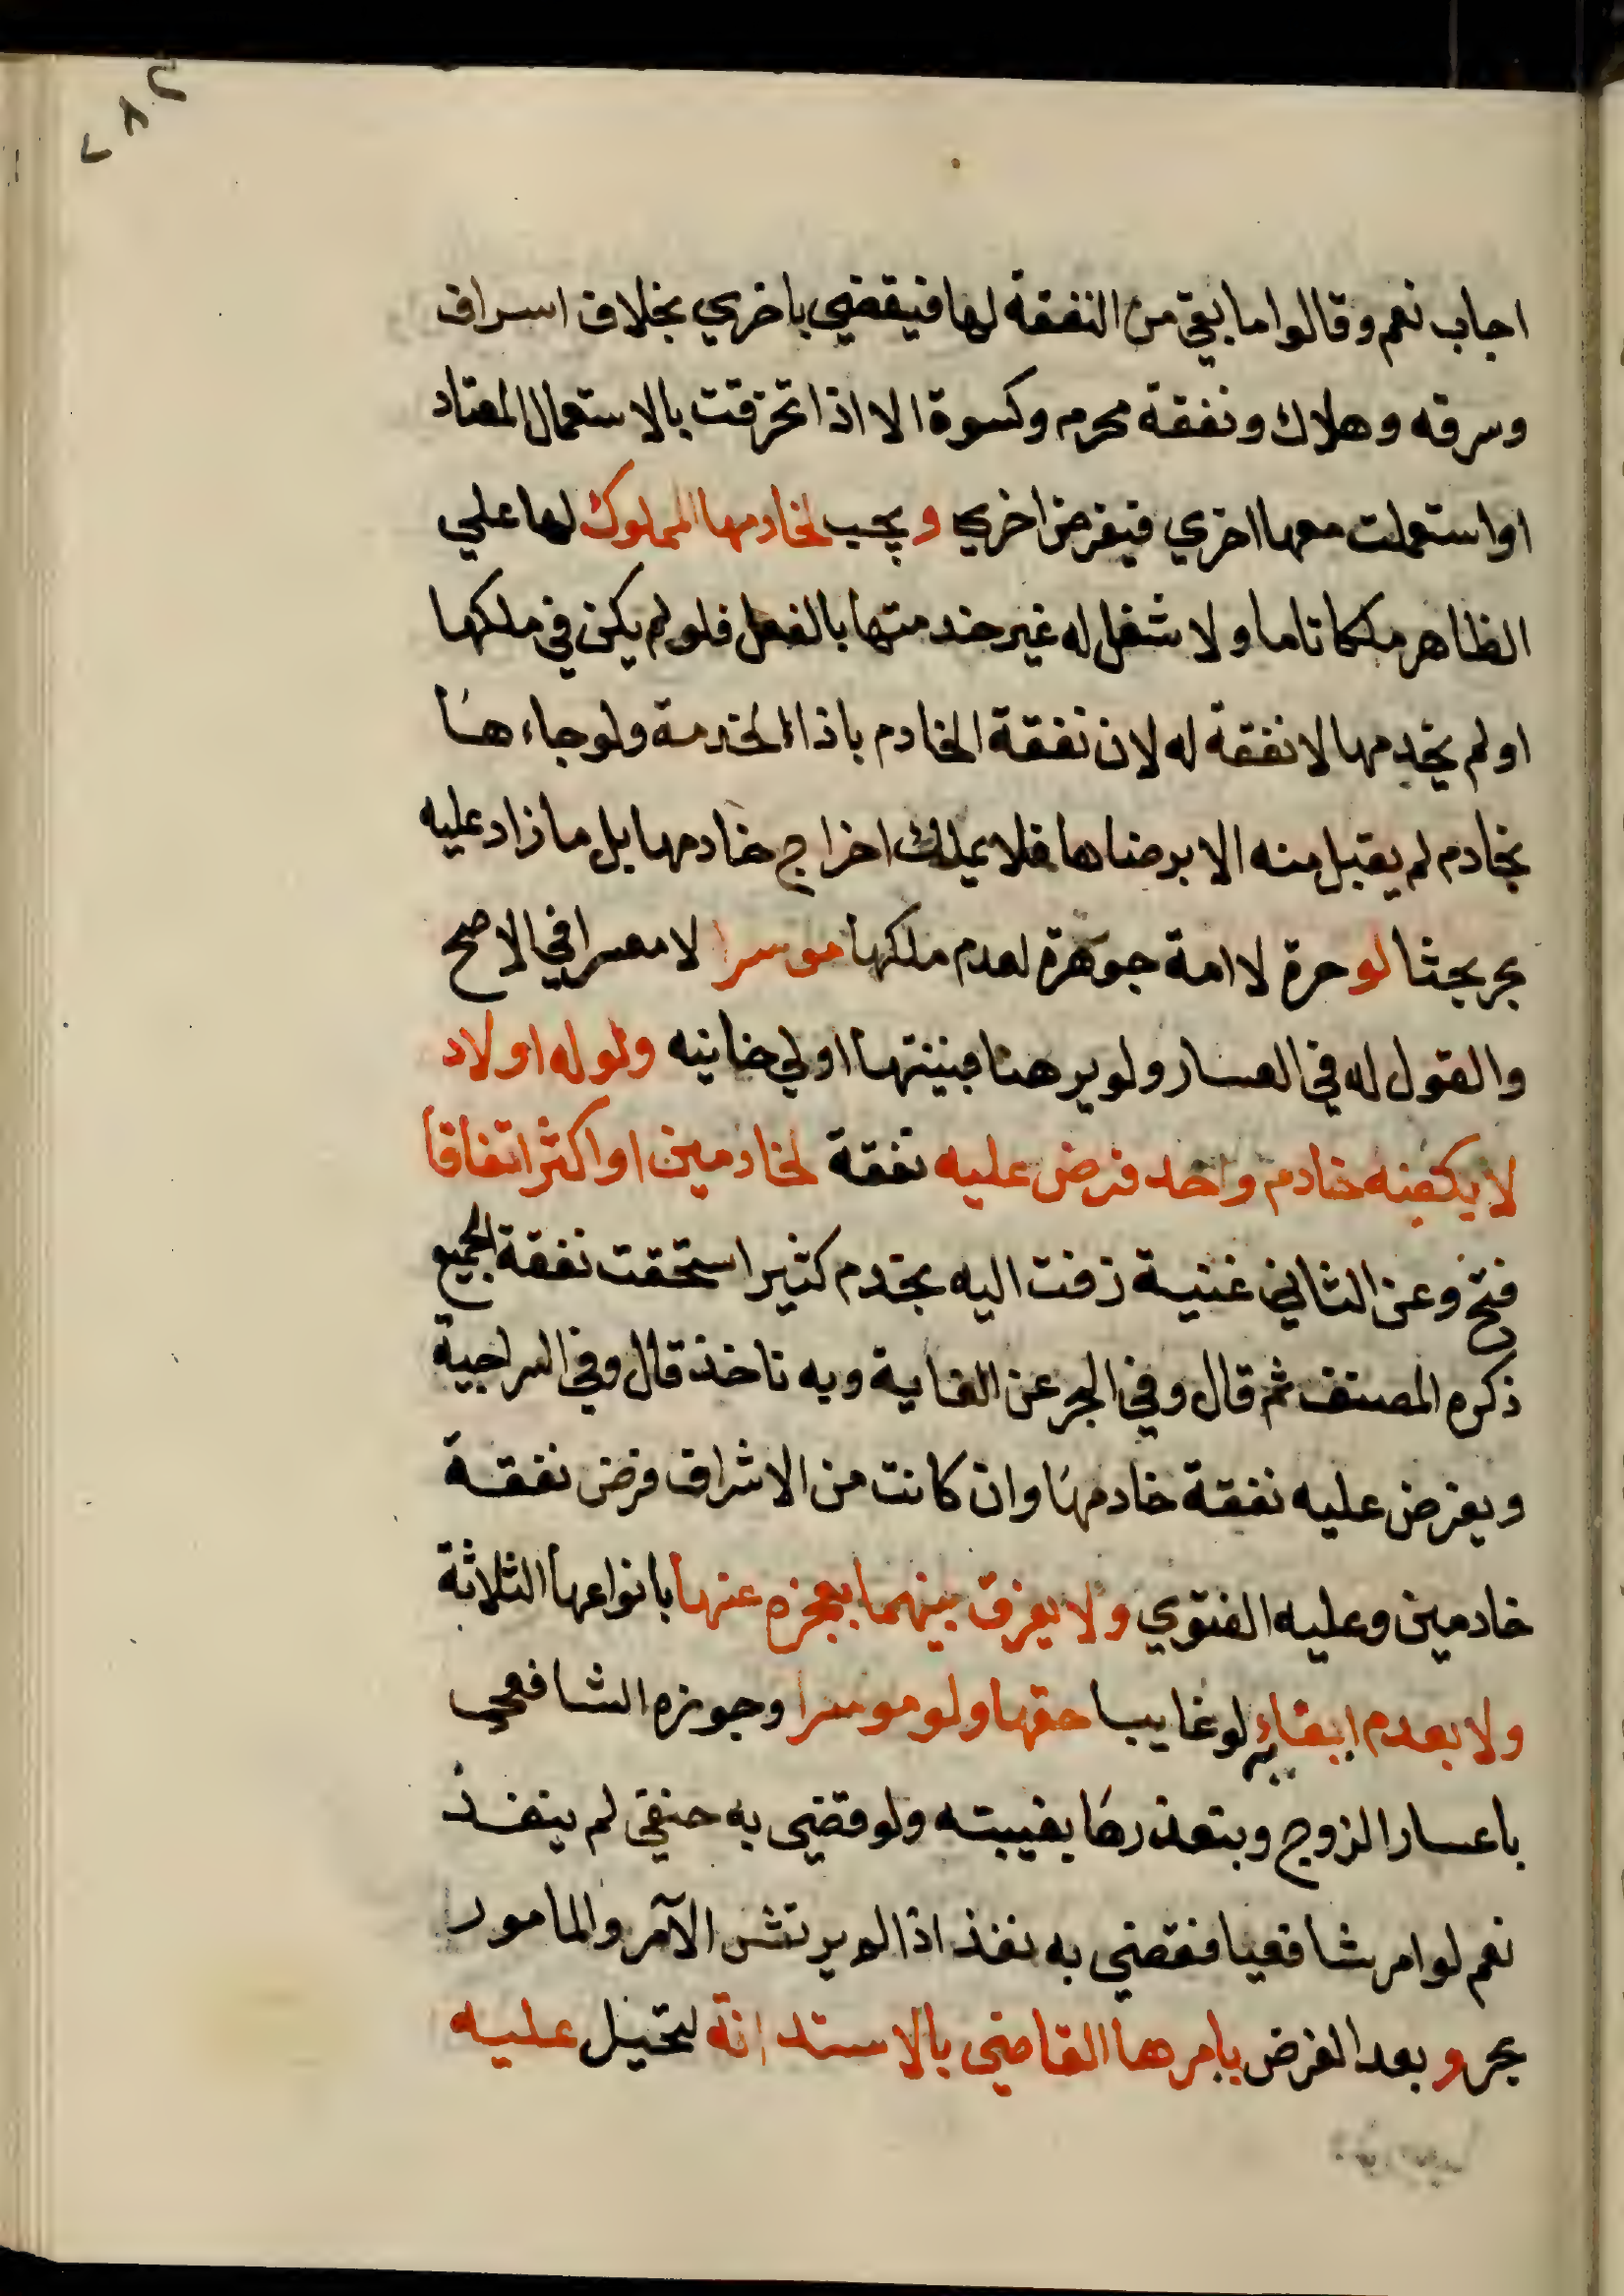 ٢٨٢
اجاب نعم وقالوا ما بقي من النفقة لها فيقضي باخري بخلاف اسراف
وسرقه وهلاك ونفقة محرم وكسوة الا اذا تخرقت بالاستعمال المعتاد
او استعملت معها اخري فيفرض اخري ويجب لخادمها المملوك لها علي
الظاهر ملكا تاما ولا شغل له غير خدمتها بالفعل فلو لم يكن في ملكها
او لم يخدمها لا نفقة له لان نفقة الخادم باذاء الخدمة ولو جاءها
بخادم لم يقبل منه الا برضاها فلا يملك اخراج خادمها بل ما زاد عليه
بحر بحثا لو حرة لا امة جوهرة لعدم ملكها موسرا لا معسرا في الاصح
والقول له في العسار ولو برهنا فبينتها اولي خانيه ولو له اولاد
لا يكفيه خادم واحد فرض عليه نفقة لخادمين او اكثر اتفاقا
فتح وعن الثاني غنية زفت اليه بخدم كثير استحقت نفقة الجميع
ذكره المصنف ثم قال وفي البحر عن الغاية وبه ناخذ قال وفي السراجية
ويفرض عليه نفقة خادمها وان كانت من الاشراف فرض نفقة
خادمين وعليه الفتوي ولا يفرق بينهما بعجزه عنها بانواعها الثلاثة
ولا بعدم ايفاء لو غايبا حقها ولو موسرا وجوزه الشافعي
باعسار الزوج وبتعذرها بغيبته ولو قضي به حنفي لم ينفذ
نعم لو امر شافعيا فقضي به نفذ اذا لم يرتش الآمر والمامور
بحر وبعد الفرض يامرها القاضي بالاستدانة لتحيل عليه